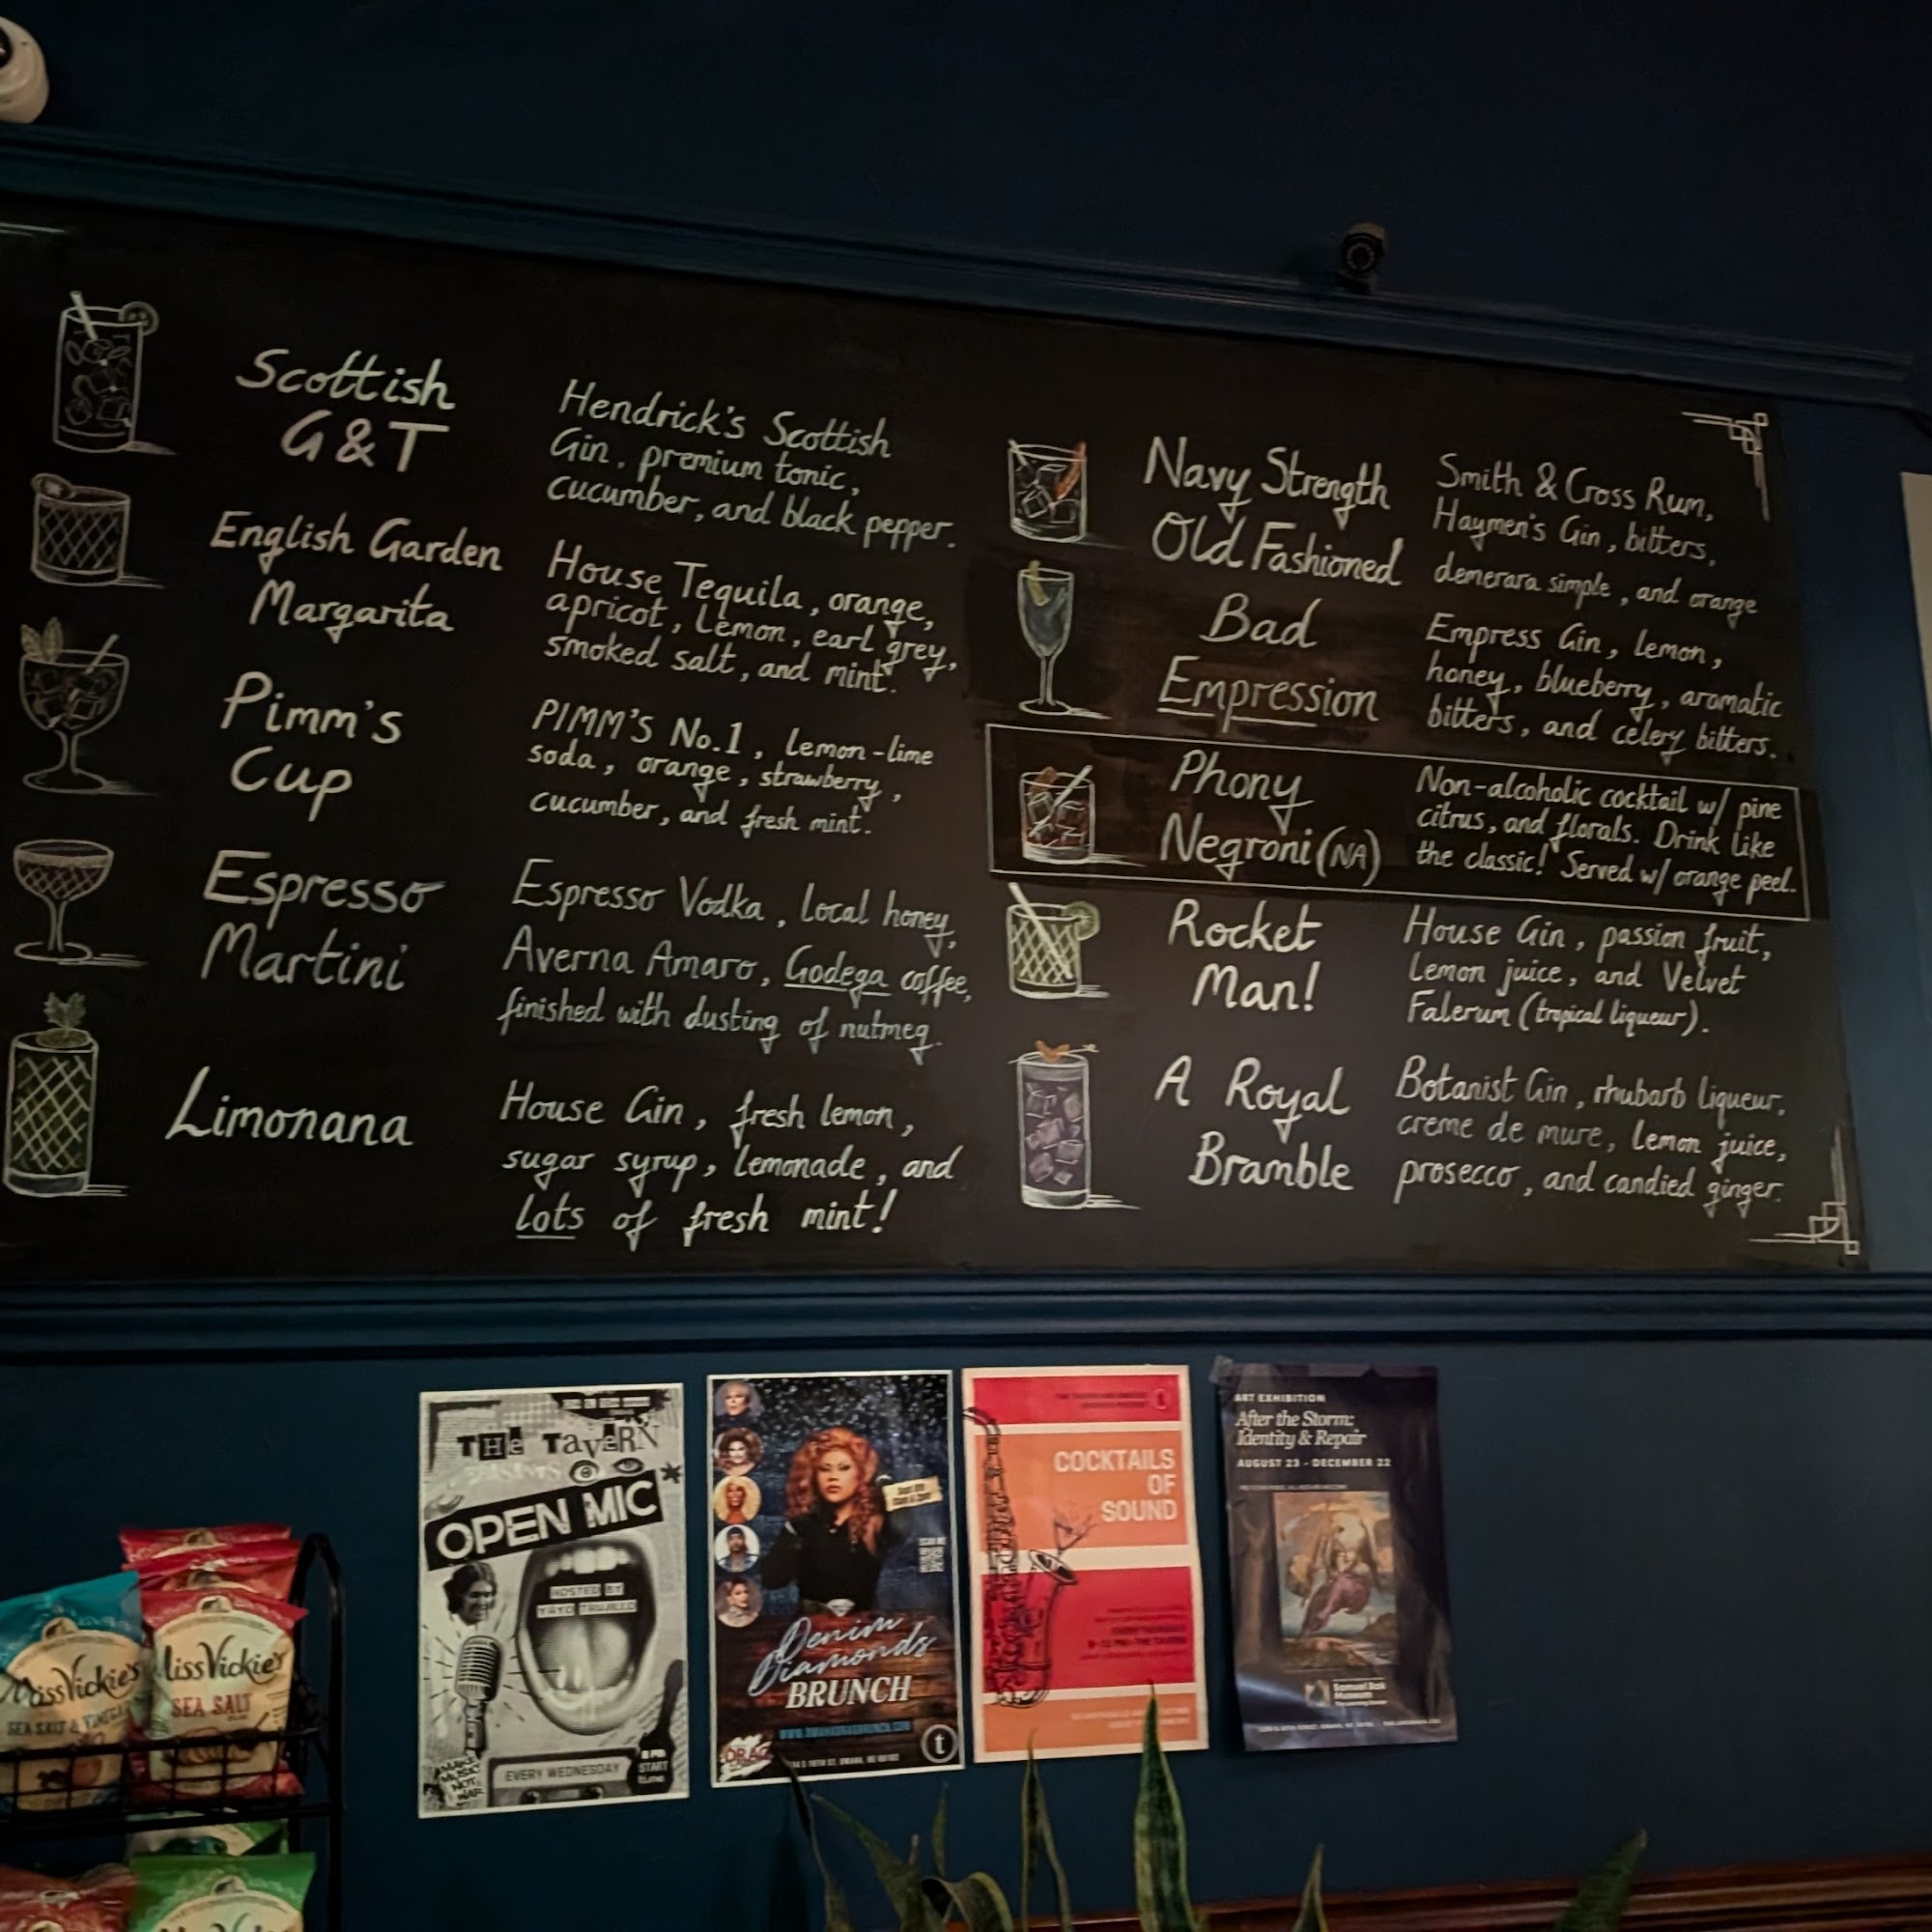 Scottish
G&T
Hendrick's Scottish
Gin, premium tonic,
cucumber, and black pepper.
English Garden
Margarita
House Tequila, orange,
apricot, Lemon, earl grey,
smoked salt, and mint.
Pimm's
Cup
PIMM'S No.1, lemon-lime
soda, orange, strawberry,
cucumber, and fresh mint.
Espresso
Martini
Espresso Vodka, local honey,
Averna Amaro, Godega coffee,
finished with dusting of nutmeg.
Limonana
House Gin, fresh lemon,
sugar syrup, lemonade, and
lots of fresh mint!
Navy Strength
Old Fashioned
Smith & Cross Rum,
Haymen's Gin, bitters,
demerara simple, and orange
Bad
Empression
Empress Gin, lemon,
honey, blueberry, aromatic
bitters, and celery bitters.
Phony
Negroni (NA)
Non-alcoholic cocktail w/ pine
citrus, and florals. Drink like
the classic! Served w/ orange peel.
Rocket
Man!
House Gin, passion fruit,
Lemon juice, and Velvet
Falerum (tropical liqueur).
A Royal
Bramble
Botanist Gin, rhubarb liqueur,
creme de mure, lemon juice,
prosecco, and candied ginger.
THE TAVERN
OPEN MIC
HOSTED BY
YAYO TRUJILLO
MAKE
MUSIC
NOT
WAR
EVERY WEDNESDAY
8 PM
START
Denim
Diamonds
BRUNCH
DRAG
t
COCKTAILS
OF
SOUND
EVERY THURSDAY
ART EXHIBITION
After the Storm:
Identity & Repair
AUGUST 23 - DECEMBER 22
Samuel Bak
Museum
Miss Vickie's
SEA SALT & VINEGAR
Miss Vickie's
SEA SALT